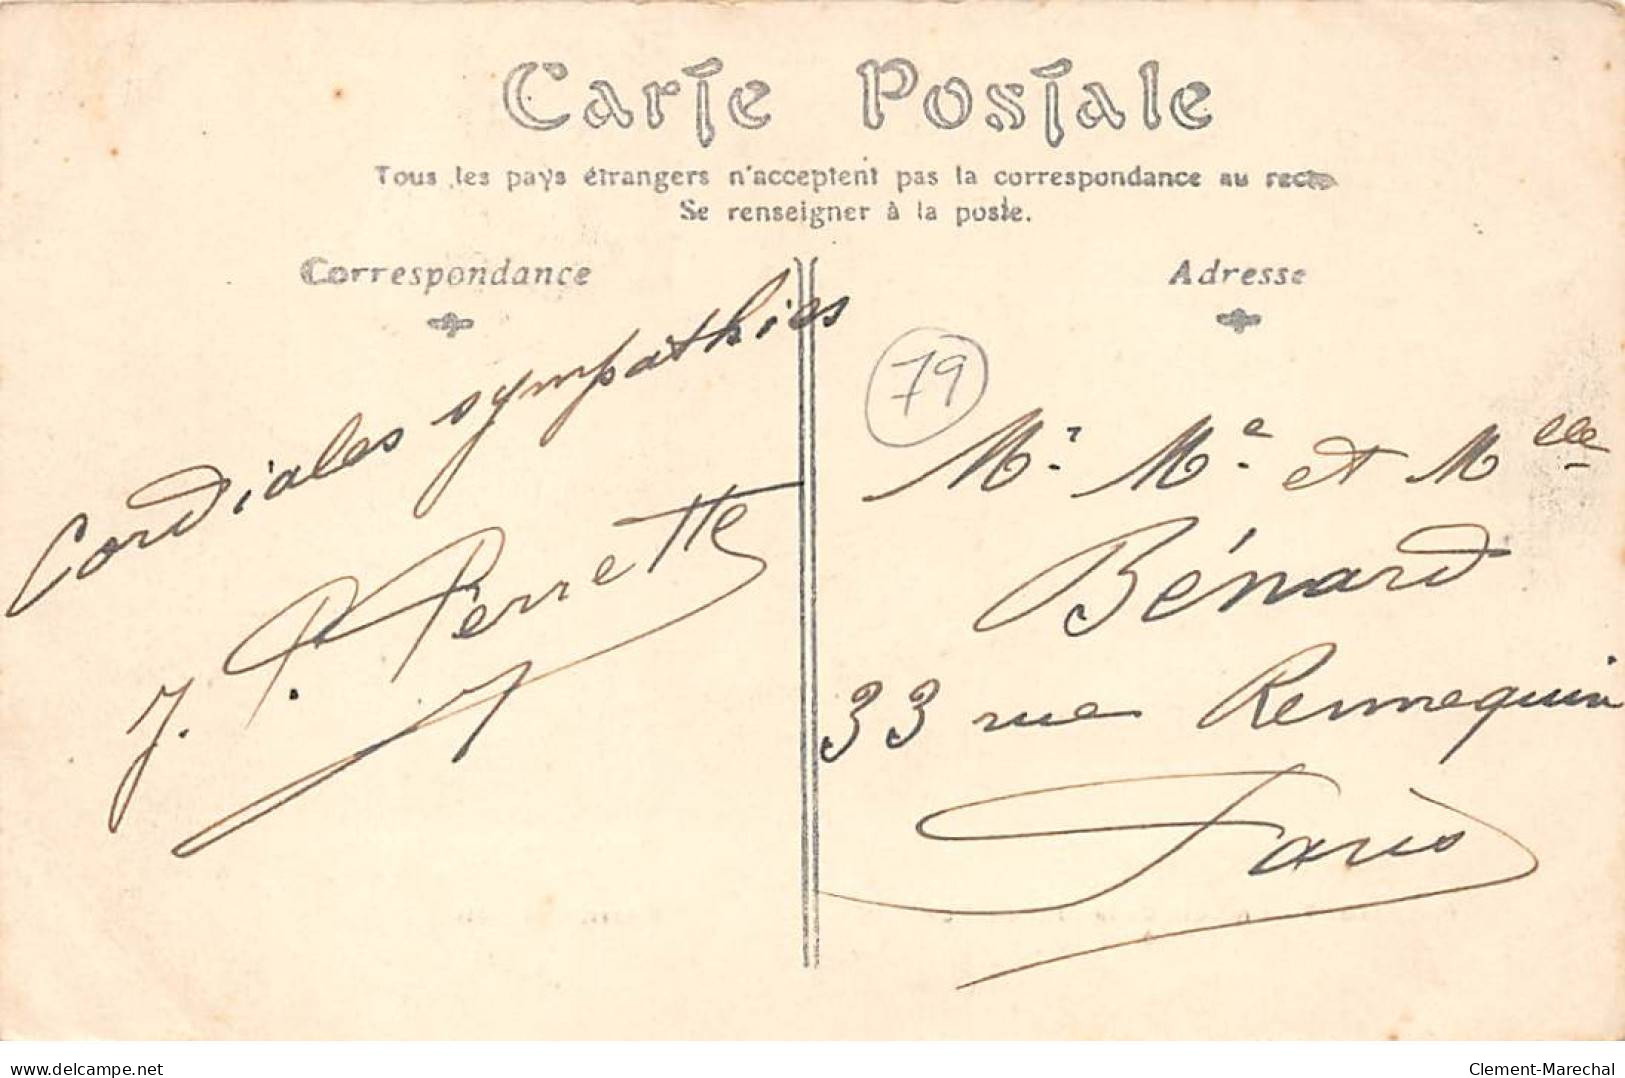 Carte Postale
Tous les pays étrangers n'acceptent pas la correspondance au recto
Se renseigner à la poste.
Correspondance
Adresse
Cordiales sympathies
J. P. Perrette
79
Mr. Me. et Melle
Bénard
33 rue Rennequin
Paris
delcampe.net
Clement-Marechal